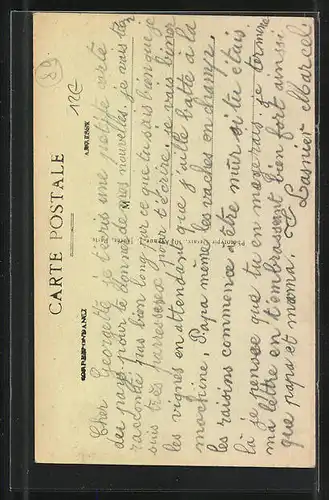 CARTE POSTALE
CORRESPONDANCE
ADRESSE
12€
Cher Georgette je t'ecris une petite carte
du pays pour te donner de mes nouvelles. je vais te
raconte pas bien long car ce que tu sais bien que je
suis très parresseux pour t'écrire. je vais biner
les vignes en attendant que j'aille batte a la
machine. Papa mène les vaches en champ.
les raisins commence a être mur si tu étais
là je pense que tu en mangerais. je termine
ma lettre en t'embrassant bien fort ainsi
que papa et maman.
Lasnier Marcel